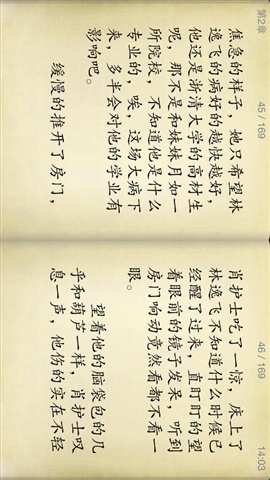 第2章 45/169
焦急的样子，她只希望林
逸飞的病好的越快越好，
他还是浙清大学的高材生
呢，那不是和妹妹月如一
所院校，不知道他是什么
专业的，唉，这场大病下
来，多半会对他的学业有
影响吧。
缓慢的推开了房门，
46/169 14:03
肖护士吃了一惊，床上了
林逸飞不知道什么时候已
经醒了过来，直盯盯的望
着眼前的镜子发呆，听到
房门响动竟然看都不看一
眼。
望着他的脑袋包的几
乎和葫芦一样，肖护士叹
息一声，他伤的实在不轻